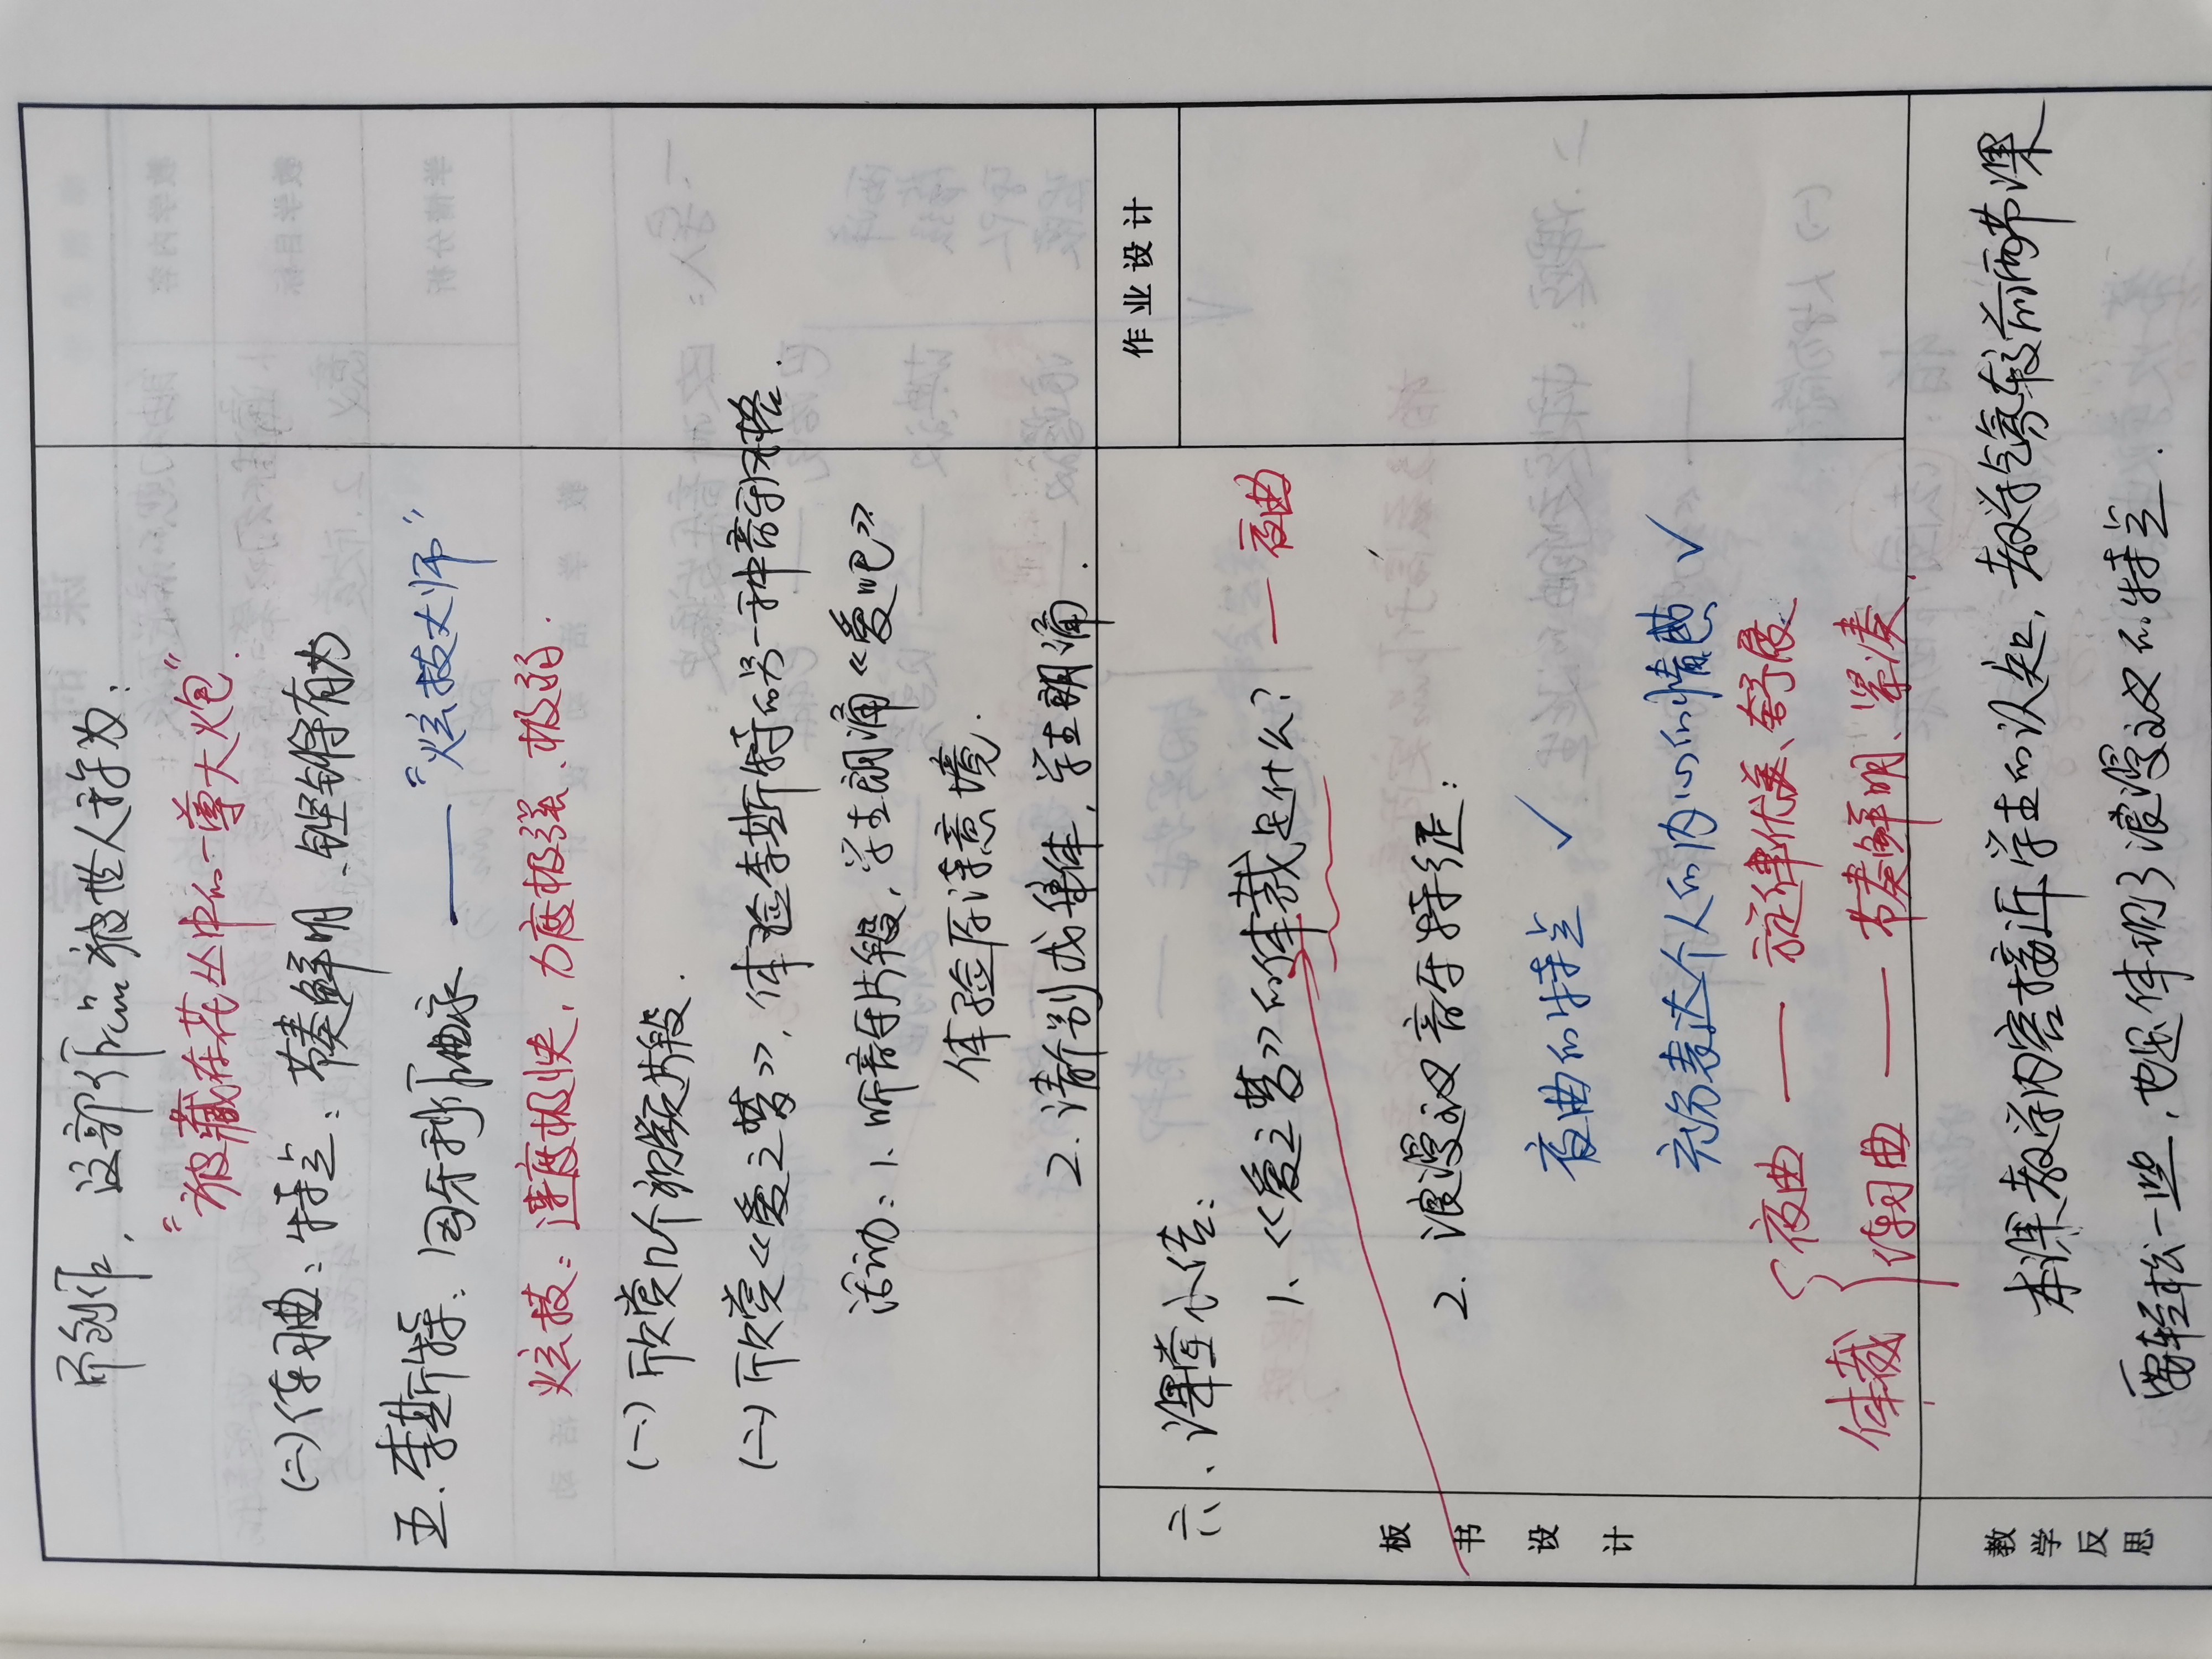 而创作，这部作品被世人称为：
“被藏在花丛中的一尊大炮”
(二)练习曲：特点：节奏鲜明、铿锵有力
五.李斯特：匈牙利作曲家——“炫技大师”
炫技：速度极快，力度极强、极弱.
(一) 欣赏几个视频片段.
(二) 欣赏《爱之梦》，体验李斯特的另一种音乐风格.
活动：1. 听音乐片段，学生朗诵《爱吧》
体验原诗意境.
2. 请个别或集体，学生朗诵.
作业设计
六、课堂小结：
1. 《爱之梦》的体裁是什么？ —夜曲
2. 浪漫主义音乐特征：
夜曲的特点 ✓
充分表达个人的内心的情感 ✓
体裁 { 夜曲 —— 旋律优美、舒展
练习曲 —— 节奏鲜明、紧凑.
板书设计
本课教学内容接近学生的认知，教学气氛较前两节课
要轻松一些，也体现了浪漫主义的特点.
教学反思